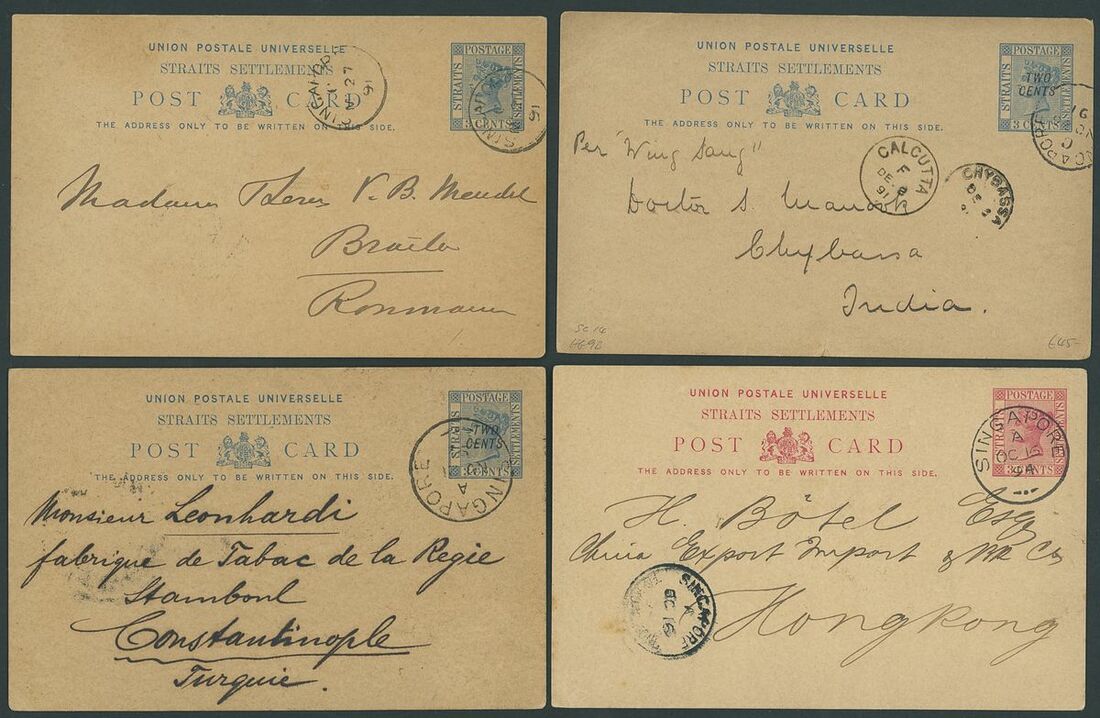 UNION POSTALE UNIVERSELLE
STRAITS SETTLEMENTS
POST CARD
THE ADDRESS ONLY TO BE WRITTEN ON THIS SIDE.
POSTAGE
STRAITS
SETTLEMENTS
3 CENTS
SINGAPORE
27
91
Madame
V. B. Mendel
Braila
UNION POSTALE UNIVERSELLE
STRAITS SETTLEMENTS
POST CARD
THE ADDRESS ONLY TO BE WRITTEN ON THIS SIDE.
POSTAGE
STRAITS
SETTLEMENTS
TWO
CENTS
3 CENTS
SINGAPORE
91
Per "Wing Sang"
CALCUTTA
DE 8
91
CHYBASSA
Doctor S. Manook
Chybassa
India.
SC 14
H&G 9B
£45-
UNION POSTALE UNIVERSELLE
STRAITS SETTLEMENTS
POST CARD
THE ADDRESS ONLY TO BE WRITTEN ON THIS SIDE.
POSTAGE
STRAITS
SETTLEMENTS
TWO
CENTS
3 CENTS
SINGAPORE
A
Monsieur Leonhardi
fabrique de Tabac de la Regie
Stamboul
Constantinople
Turquie.
UNION POSTALE UNIVERSELLE
STRAITS SETTLEMENTS
POST CARD
THE ADDRESS ONLY TO BE WRITTEN ON THIS SIDE.
POSTAGE
STRAITS
SETTLEMENTS
3 CENTS
SINGAPORE
A
OC 15
94
H. Bötel Esq
China Export Import & Bk Co
Hongkong
SINGAPORE
A
OC 16